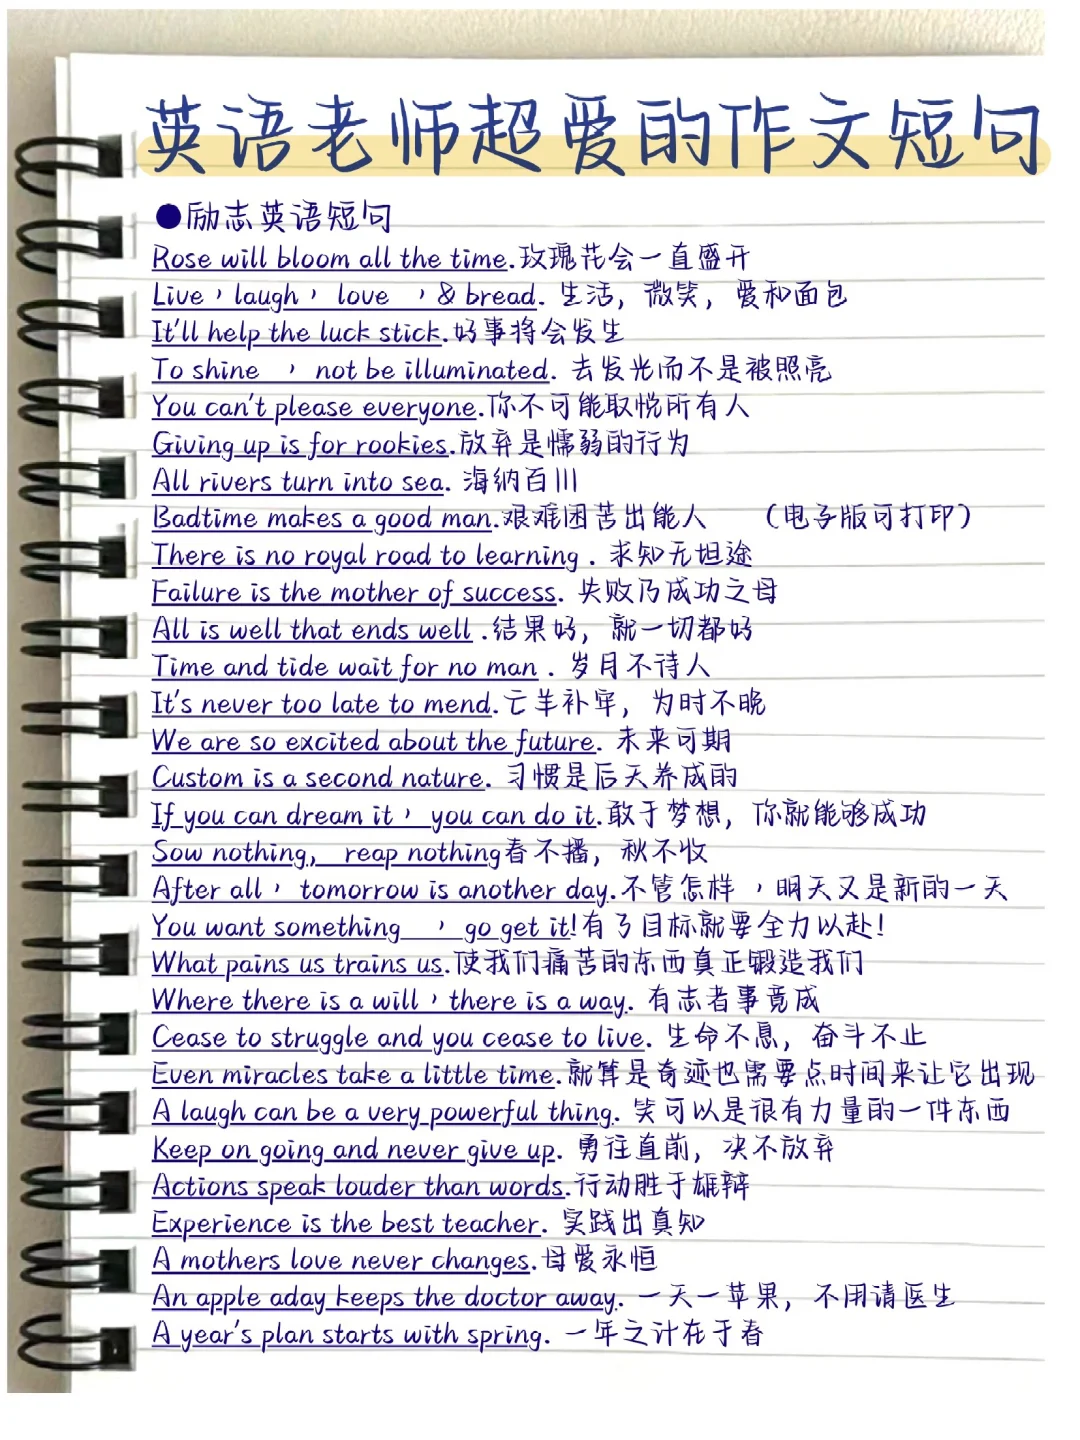 英语老师超爱的作文短句
●励志英语短句
Rose will bloom all the time.玫瑰花会一直盛开
Live，laugh， love ，& bread. 生活，微笑，爱和面包
It'll help the luck stick.好事将会发生
To shine ， not be illuminated. 去发光而不是被照亮
You can't please everyone.你不可能取悦所有人
Giving up is for rookies.放弃是懦弱的行为
All rivers turn into sea. 海纳百川
Badtime makes a good man.艰难困苦出能人 （电子版可打印）
There is no royal road to learning . 求知无坦途
Failure is the mother of success. 失败乃成功之母
All is well that ends well .结果好，就一切都好
Time and tide wait for no man . 岁月不待人
It's never too late to mend.亡羊补牢，为时不晚
We are so excited about the future. 未来可期
Custom is a second nature. 习惯是后天养成的
If you can dream it， you can do it.敢于梦想，你就能够成功
Sow nothing， reap nothing春不播，秋不收
After all， tomorrow is another day.不管怎样 ，明天又是新的一天
You want something ， go get it!有了目标就要全力以赴!
What pains us trains us.使我们痛苦的东西真正锻造我们
Where there is a will，there is a way. 有志者事竟成
Cease to struggle and you cease to live. 生命不息，奋斗不止
Even miracles take a little time.就算是奇迹也需要点时间来让它出现
A laugh can be a very powerful thing. 笑可以是很有力量的一件东西
Keep on going and never give up. 勇往直前，决不放弃
Actions speak louder than words.行动胜于雄辩
Experience is the best teacher. 实践出真知
A mothers love never changes.母爱永恒
An apple aday keeps the doctor away. 一天一苹果，不用请医生
A year's plan starts with spring. 一年之计在于春